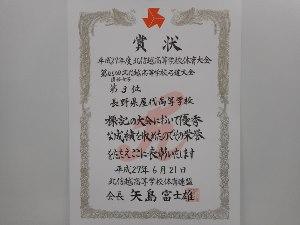 賞状
平成27年度北信越高等学校体育大会
北信越高等学校弓道大会
第3位
長野県屋代高等学校
標記の大会において優秀
な成績を収めたのでその栄誉
をたたえここに表彰いたします
平成27年6月21日
北信越高等学校体育連盟
会長 矢島 富士雄